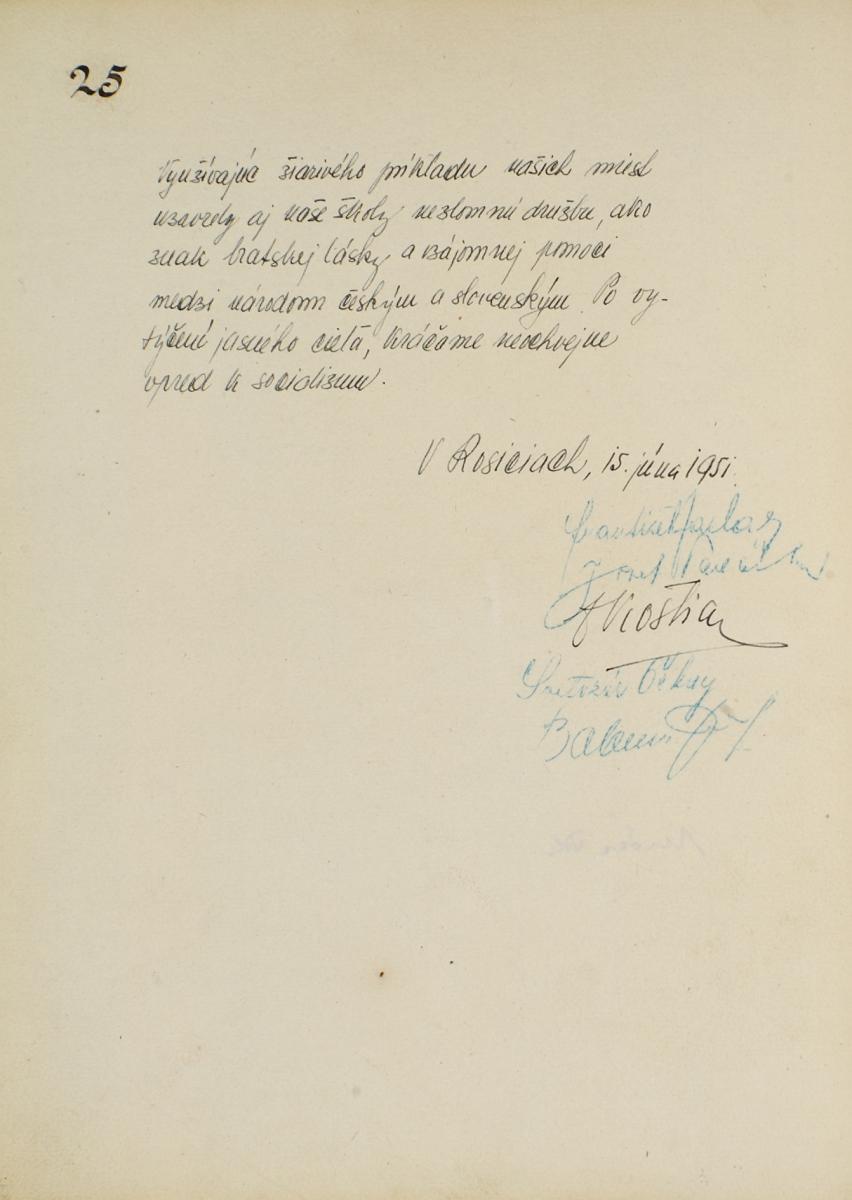 25
Využívajúc žiarivého príkladu našich miest
uzavrely aj naše školy nezlomnú družbu, ako
znak bratskej lásky a vzájomnej pomoci
medzi národom českým a slovenským. Po vy-
týčení jasného cieľa, kráčame neochvejne
vpred k socializmu.
V Rosiciach, 15. júna 1951.
František
Josef
Kostka
Svetozár